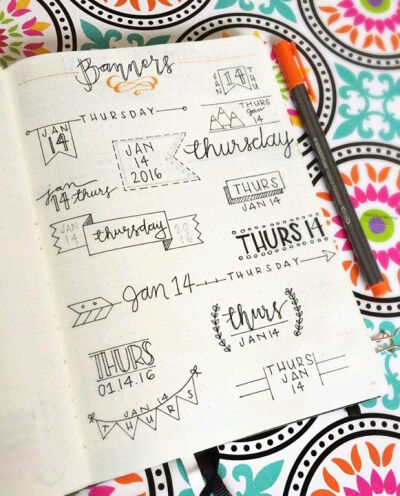 Banners
JAN
14
THU
THURSDAY
THURS
jan
14
JAN
14
JAN
14
2016
thursday
jan
14 thurs
THURS
JAN 14
JAN
14
thursday
20
16
THURS 14
jan 14
THURSDAY
thurs
JAN 14
THURS
01.14.16
THURS
JAN
14
JAN 14
THURS